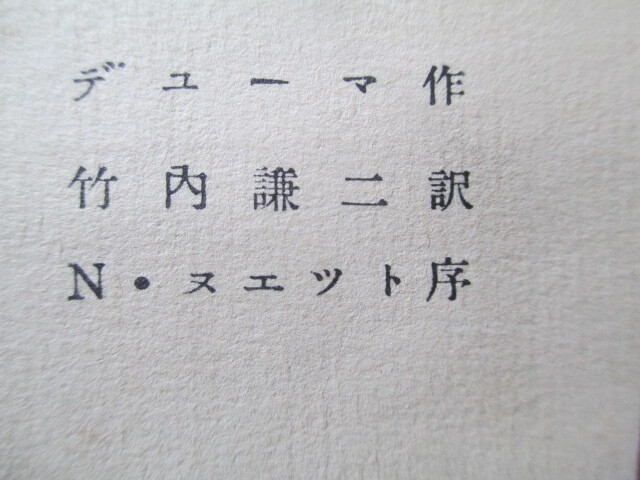 デューマ作
竹内謙二訳
N・ヌエット序